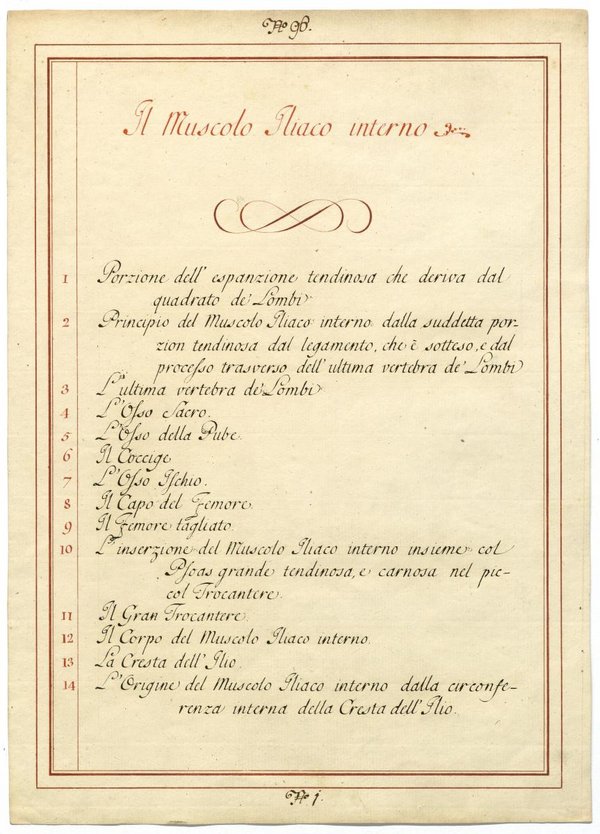 No 96.
Il Muscolo Iliaco interno
1 Porzione dell' espanzione tendinosa che deriva dal
quadrato de' Lombi
2 Principio del Muscolo Iliaco interno dalla suddetta por-
zion tendinosa dal legamento, che è sotteso, e dal
processo trasverso dell' ultima vertebra de' Lombi
3 L'ultima vertebra de' Lombi
4 L'Osso Sacro.
5 L'Osso della Pube
6 Il Coccige
7 L'Osso Ischio.
8 Il Capo del Femore.
9 Il Femore tagliato.
10 L'inserzione del Muscolo Iliaco interno insieme col
Psoas grande tendinosa, e carnosa nel pic-
col Trocantere.
11 Il Gran Trocantere.
12 Il Corpo del Muscolo Iliaco interno.
13 La Cresta dell' Ilio.
14 L'Origine del Muscolo Iliaco interno dalla circonfe-
renza interna della Cresta dell' Ilio.
No 1.